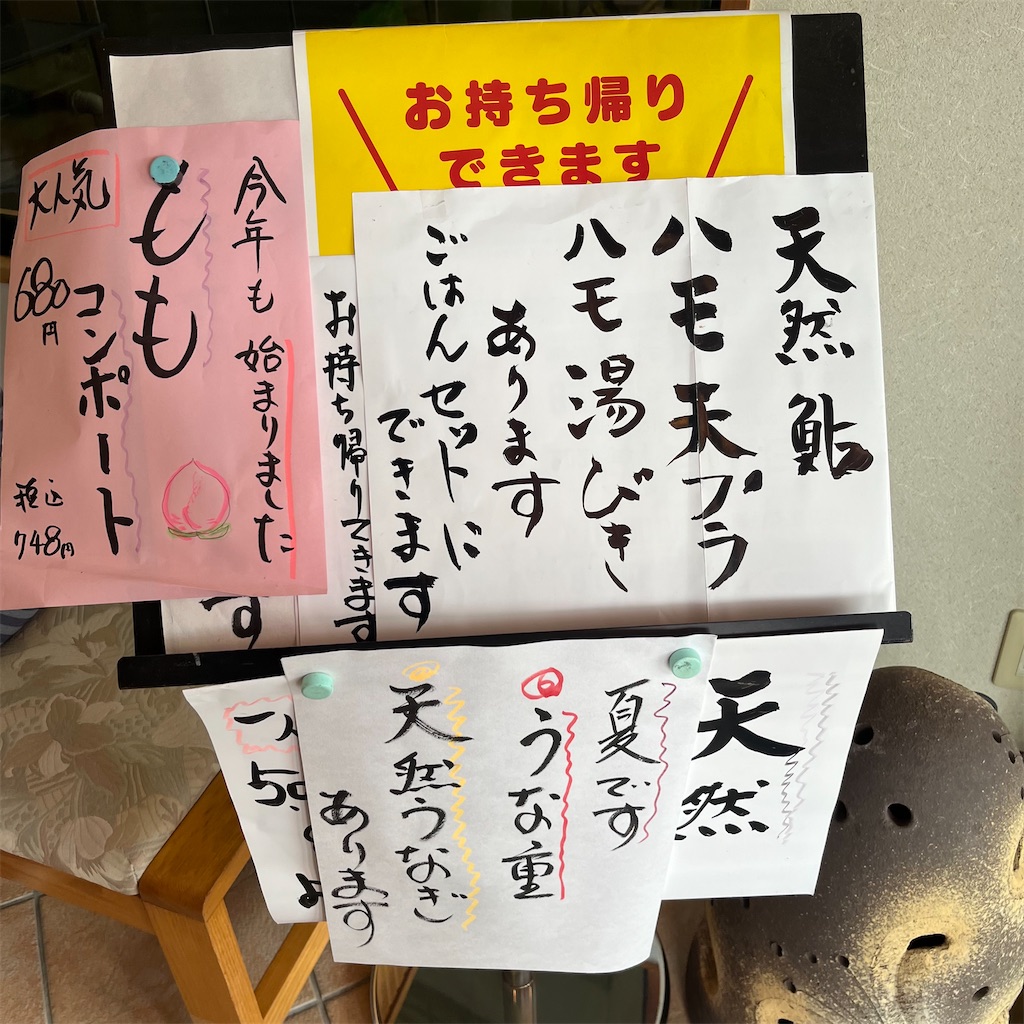 お持ち帰り
できます
今年も始まりました
もも
コンポート
大人気
680円
税込
748円
天然鮎
ハモ天プラ
ハモ湯びき
あります
ごはんセットに
できます
お持ち帰りできます
す
天然
夏です
うな重
天然うなぎ
あります